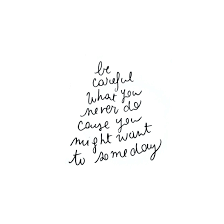 be
careful
what you
never do
cause you
might want
to someday